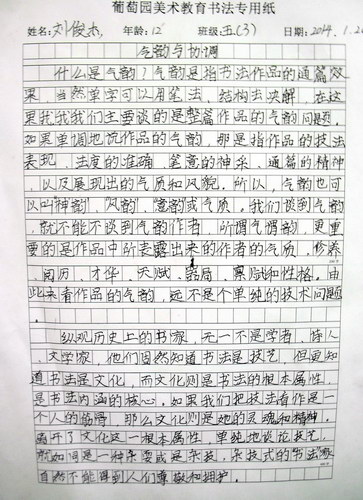 葡萄园美术教育书法专用纸
姓名:刘俊杰 年龄:12 班级 五(3) 日期:2014.1.20
气韵与协调
什么是气韵?气韵是指书法作品的通篇效
果,当然单字可以用笔法,结构法决解,在这
里我我我们主要谈的是整篇作品的气韵问题,
如果单调地说作品的气韵,那是指作品的技法
表现、法度的准确、笔意的神采、通篇的精神
,以及展现出的气质和风貌。所以,气韵也可
以叫神韵,风韵,意韵或气质,我们谈到气韵
,就不能不谈到气韵作者,所谓气谓韵,更重
要的是作品中所表露出来的作者的气质,修养
、阅历、才华、天赋、器局、禀赋和性格。由
此来看作品的气韵,远不是个单纯的技术问题
。
纵观历史上的书家,无一不是学者、诗人
、文学家,他们固然知道书法是技艺,但更知
道书法是文化,而文化则是书法的根本属性,
是书法内涵的核心,如果我们把技法看作是一
个人的筋骨,那么文化则是她的灵魂和精神,
离开了文化这一根本属性,单纯地谈论技艺,
就如同是一种杂耍或是杂技,杂技式的书法
自然不能得到人们尊敬和拥护。